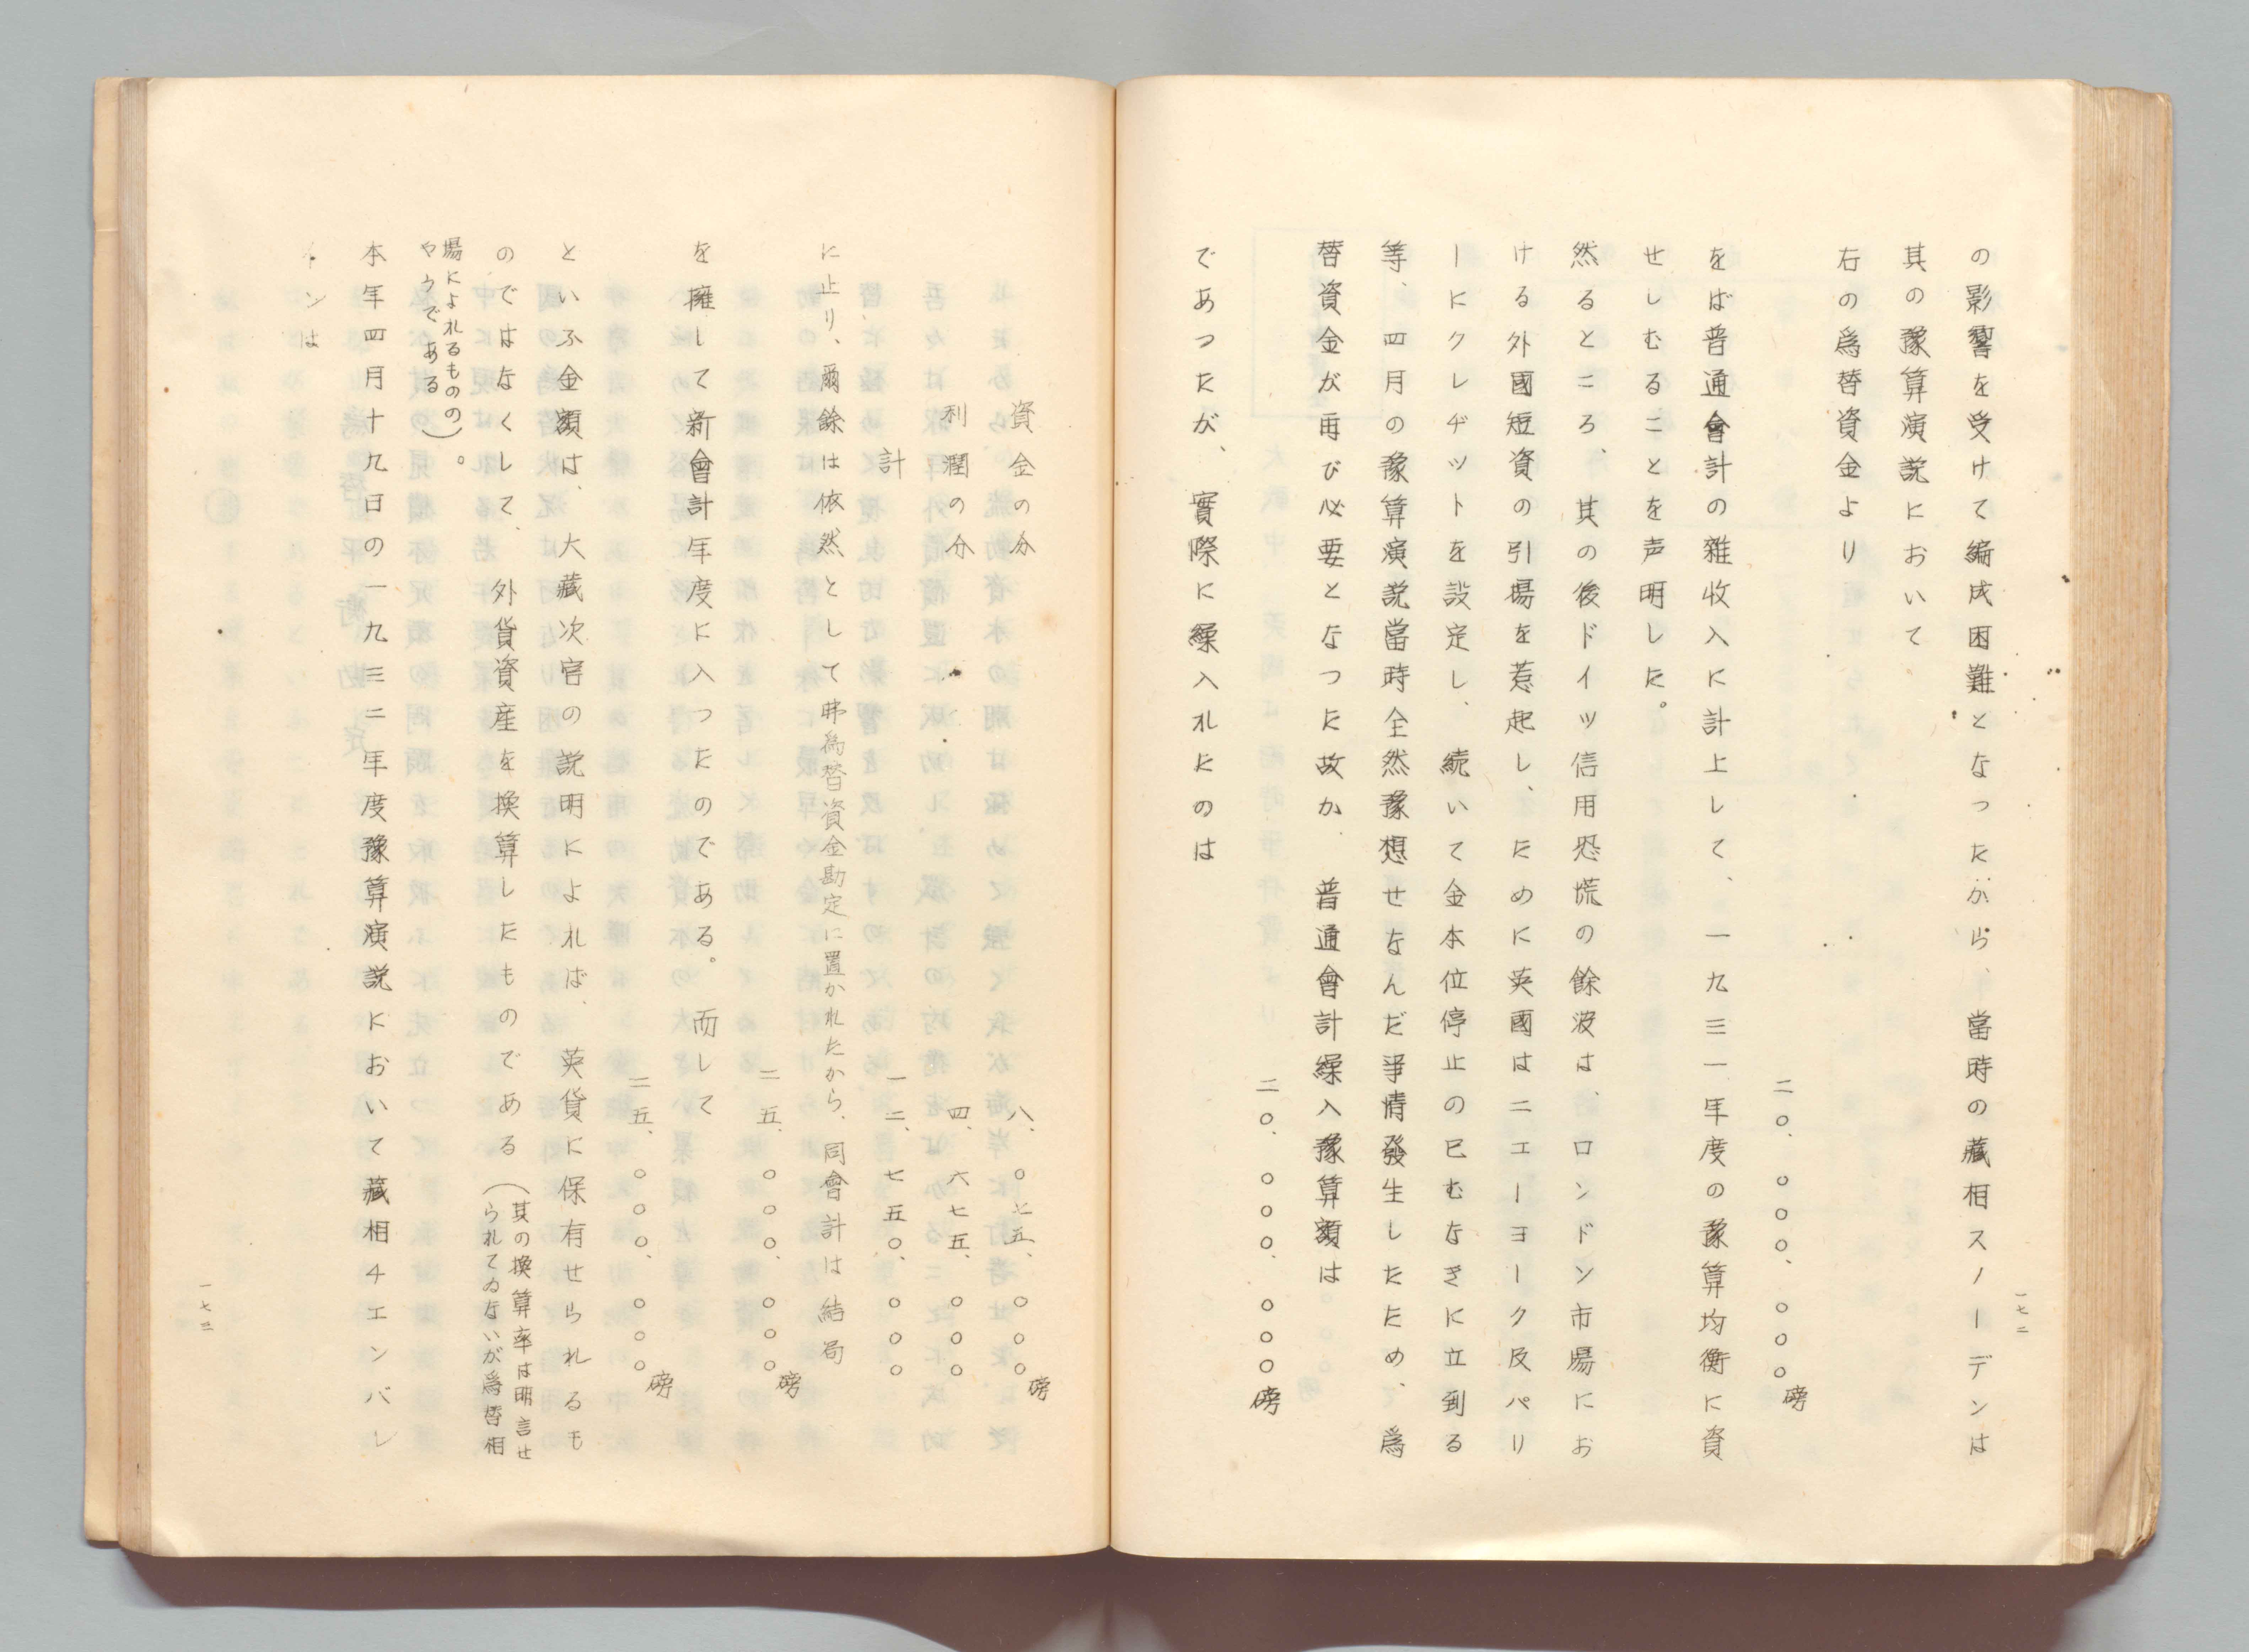 の影響を受けて編成困難となつたから、當時の藏相スノーデンは
其の豫算演説において
右の爲替資金より
二〇、〇〇〇、〇〇〇磅
をば普通會計の雜收入に計上して、一九三一年度の豫算均衡に資
せしむることを声明した。
然るところ、其の後ドイツ信用恐慌の餘波は、ロンドン市場にお
ける外國短資の引揚を惹起し、ために英國はニエーヨーク及パリ
ーにクレヂットを設定し、続いて金本位停止の已むなきに立到る
等、四月の豫算演説當時全然豫想せなんだ事情發生したため、爲
替資金が再び必要となつた故か、普通會計繰入豫算額は
二〇、〇〇〇、〇〇〇磅
であつたが、實際に繰入れたのは
一七二
資金の分　八、〇七五、〇〇〇磅
利潤の分　四、六七五、〇〇〇
計　一二、七五〇、〇〇〇
に止り、爾餘は依然として爲替資金勘定に置かれたから、同會計は結局
二五、〇〇〇、〇〇〇磅
を擁して新會計年度に入つたのである。而して
二五、〇〇〇、〇〇〇磅
といふ金額は、大藏次官の説明によれば、英貨に保有せられるも
のではなくして、外貨資産を換算したものである（其の換算率は明言せ
られてゐないが爲替相
場によれるものの
やうである）。
本年四月十九日の一九三二年度豫算演説において藏相チエンバレ
ンは
一七三